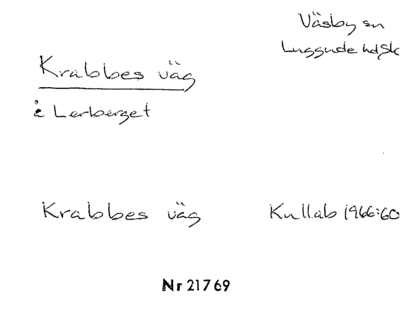 Väsby sn
Luggude hd Sk
Krabbes väg
i Lerberget
Krabbes väg Kullab 1966:60
Nr 21769